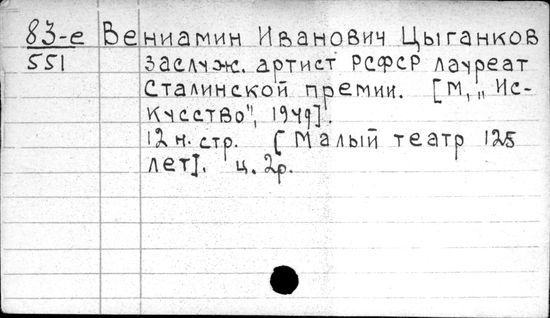 83-е Вениамин Иванович Цыганков
551 заслуж. артист РСФСР лауреат
Сталинской премии. [М, „Ис-
кусство", 1949].
12 н. стр. [Малый театр 125
лет]. ц. 2р.